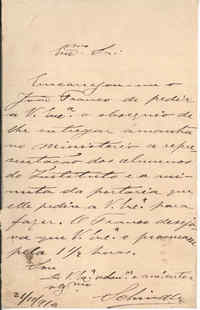 Exmo Sr.
Encarregou-me o
João Franco de pedir
a V. Exª. o obsequio de
lhe entregar amanhã
no ministerio a repre-
sentação dos alumnos
do Instituto e a mi-
nuta da portaria que
elle pedira a V. Exª. para
fazer. O Franco deseja-
va que V. Exª o procurasse
pela 1 1/2 horas.
Sou
de V. Exª. adm.or e
Schindler